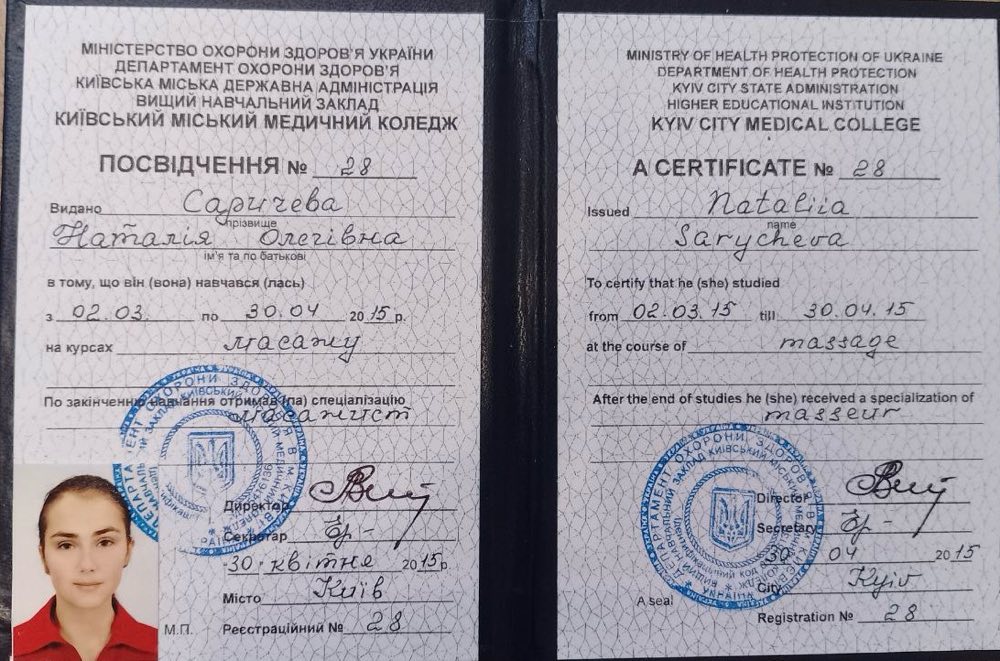 МІНІСТЕРСТВО ОХОРОНИ ЗДОРОВ'Я УКРАЇНИ
ДЕПАРТАМЕНТ ОХОРОНИ ЗДОРОВ'Я
КИЇВСЬКА МІСЬКА ДЕРЖАВНА АДМІНІСТРАЦІЯ
ВИЩИЙ НАВЧАЛЬНИЙ ЗАКЛАД
КИЇВСЬКИЙ МІСЬКИЙ МЕДИЧНИЙ КОЛЕДЖ
ПОСВІДЧЕННЯ № 28
Видано Саричева
прізвище
Наталія Олегівна
ім'я та по батькові
в тому, що він (вона) навчався (лась)
з 02.03. по 30.04 2015 р.
на курсах масажу
По закінченню навчання отримав (ла) спеціалізацію
масажист
Директор
Секретар
30 квітня 2015р.
Місто Київ
М.П. Реєстраційний № 28
MINISTRY OF HEALTH PROTECTION OF UKRAINE
DEPARTMENT OF HEALTH PROTECTION
KYIV CITY STATE ADMINISTRATION
HIGHER EDUCATIONAL INSTITUTION
KYIV CITY MEDICAL COLLEGE
A CERTIFICATE № 28
Issued Nataliia
name
Sarycheva
To certify that he (she) studied
from 02.03.15 till 30.04.15
at the course of massage
After the end of studies he (she) received a specialization of
masseur
Director
Secretary
30 04 2015
City Kyiv
A seal
Registration № 28